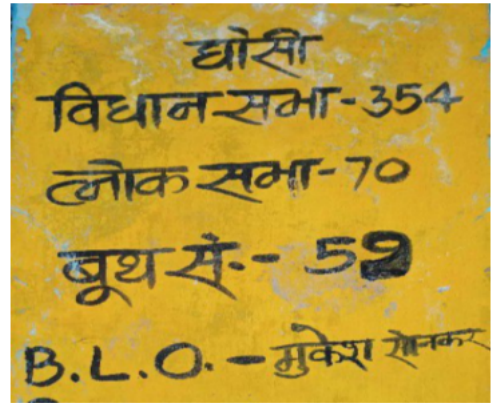 घोसी
विधान सभा-354
लोक सभा-70
बूथ सं.-- 52
B.L.O.-मुकेश सोनकर